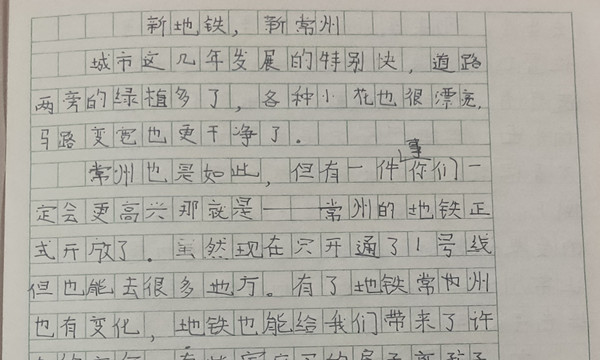 新地铁，新常州
城市这几年发展的特别快，道路
两旁的绿植多了，各种小花也很漂亮，
马路变宽也更干净了．
常州也是如此，但有一件事你们一
定会更高兴那就是——常州的地铁正
式开放了．虽然现在只开通了1号线
但也能去很多地方．有了地铁常州
也有变化，地铁也能给我们带来了许